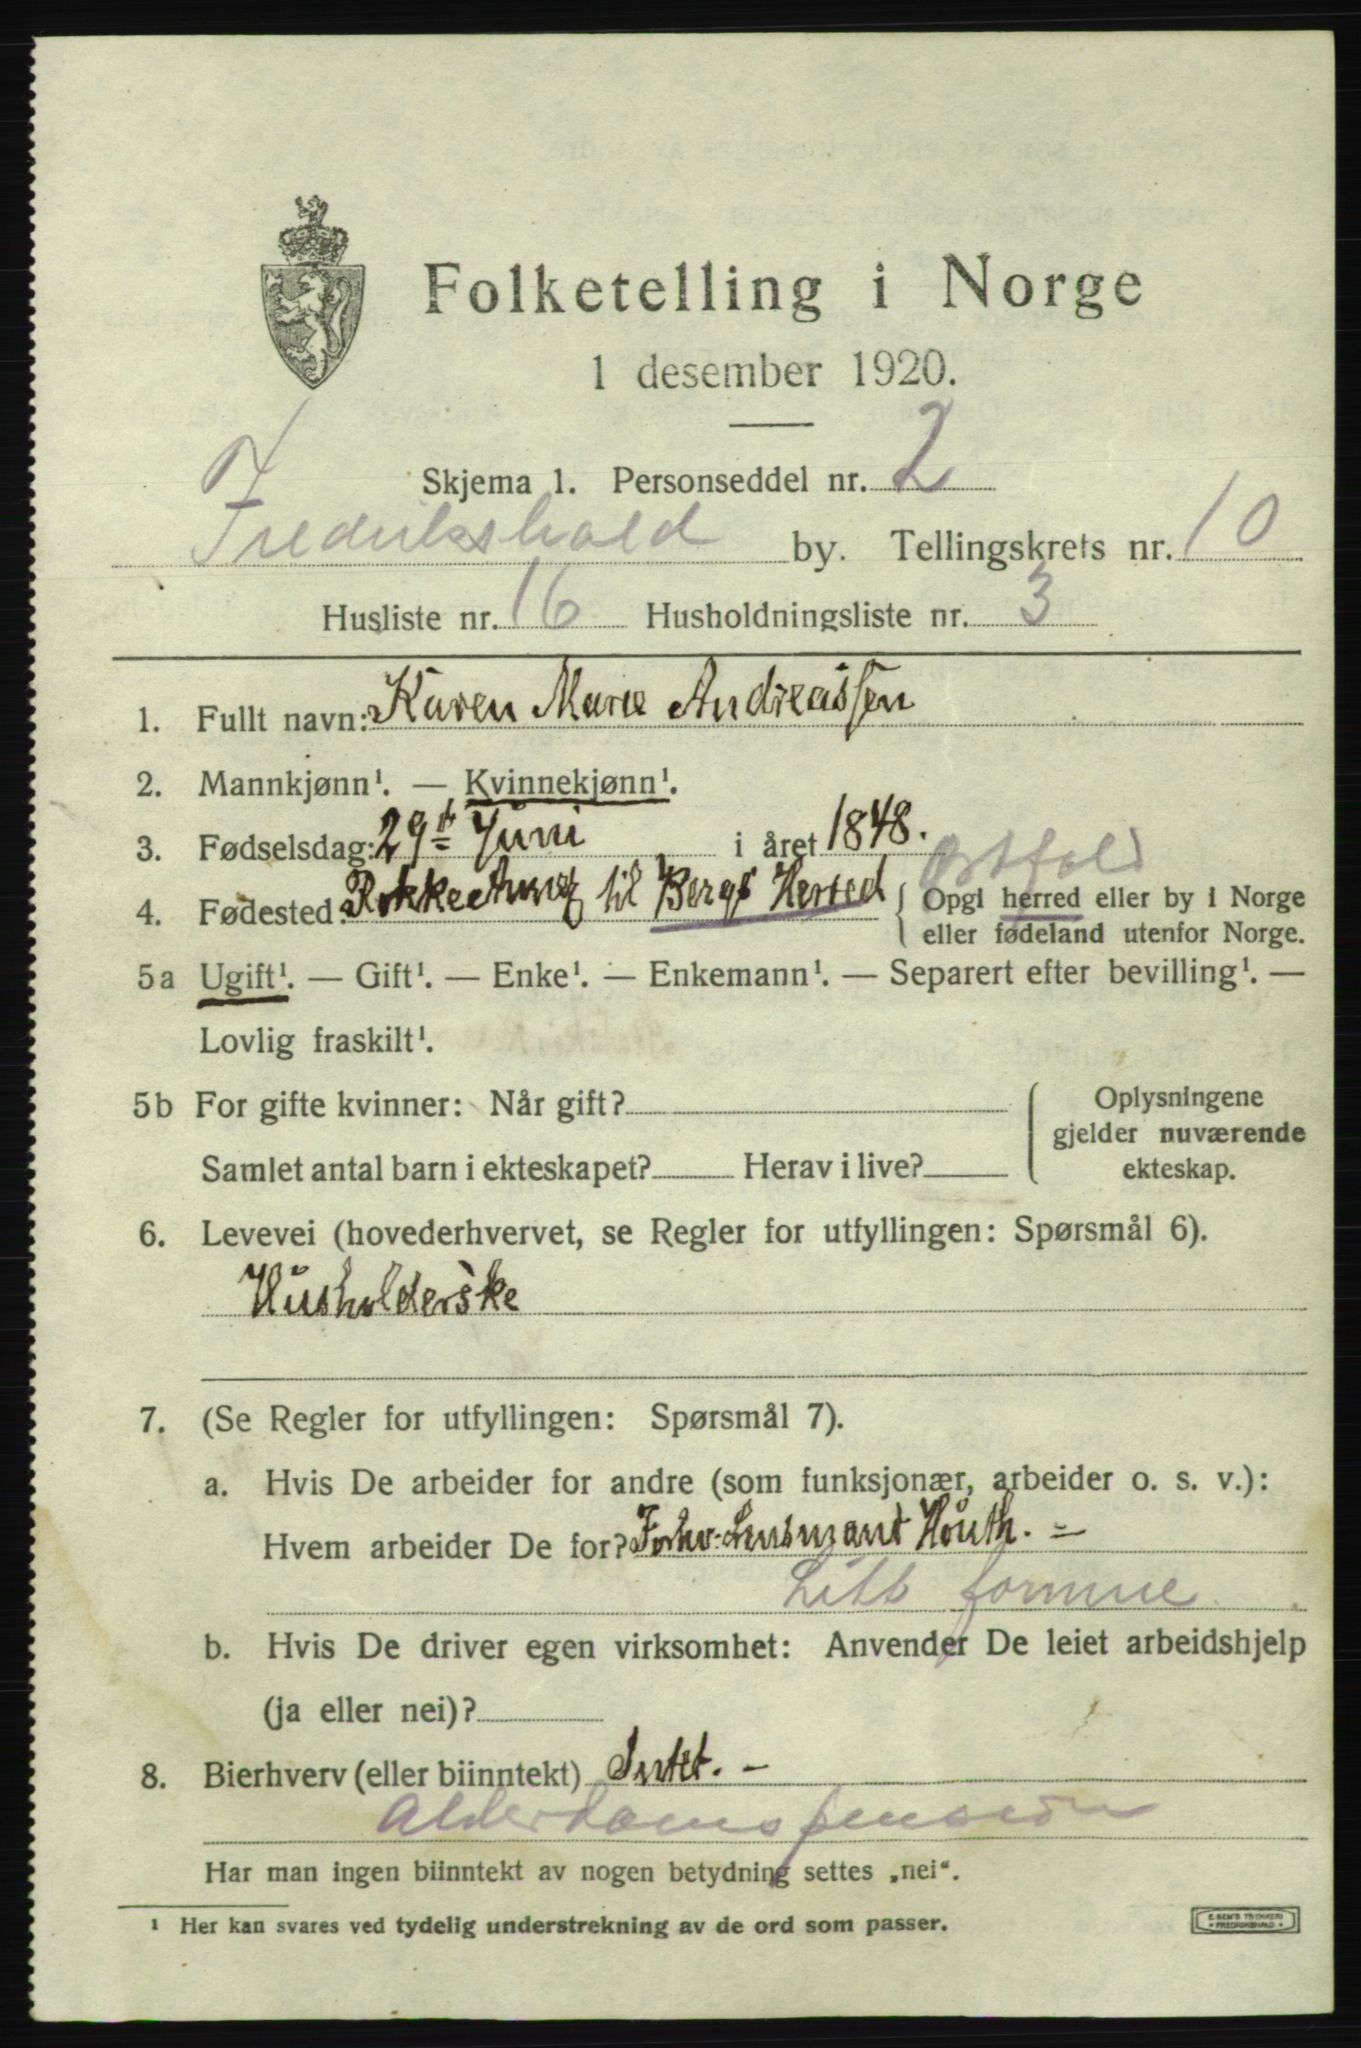 Folketelling i Norge
1 desember 1920.
Skjema 1. Personseddel nr. 2
Fredrikshald by. Tellingskrets nr. 10
Husliste nr. 16 Husholdningsliste nr. 3
1. Fullt navn: Karen Marie Andreassen
2. Mannkjønn¹. — Kvinnekjønn¹.
3. Fødselsdag: 29de Juni i året 1848.
Østfold
4. Fødested: Rokke til Bergs Herred { Opgi herred eller by i Norge
eller fødeland utenfor Norge.
5a Ugift¹. — Gift¹. — Enke¹. — Enkemann¹. — Separert efter bevilling¹. —
Lovlig fraskilt¹.
5b For gifte kvinner: Når gift?
Samlet antal barn i ekteskapet? Herav i live?
Oplysningene
gjelder nuværende
ekteskap.
6. Levevei (hovederhvervet, se Regler for utfyllingen: Spørsmål 6).
Husholderske
7. (Se Regler for utfyllingen: Spørsmål 7).
a. Hvis De arbeider for andre (som funksjonær, arbeider o. s. v.):
Hvem arbeider De for? Forhv. Lensmand Houth. =
Litt formue
b. Hvis De driver egen virksomhet: Anvender De leiet arbeidshjelp
(ja eller nei)?
8. Bierhverv (eller biinntekt) Intet. -
Alderdomspension
Har man ingen biinntekt av nogen betydning settes „nei“.
¹ Her kan svares ved tydelig understrekning av de ord som passer.
E. SEM'S TRYKKERI
• FREDRIKSHALD •